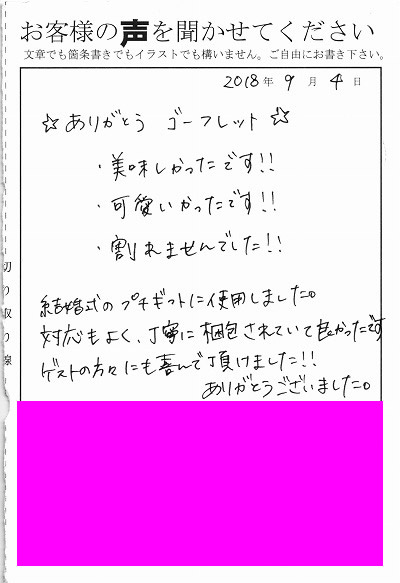 お客様の声を聞かせてください
文章でも箇条書きでもイラストでも構いません。ご自由にお書き下さい。
2018年 9月 4日
☆ありがとう ゴーフレット☆
・美味しかったです!!
・可愛いかったです!!
・割れませんでした!!
結婚式のプチギフトに使用しました。
対応もよく、丁寧に梱包されていて良かったです
ゲストの方々にも喜んで頂けました!!
ありがとうございました。
切り取り線